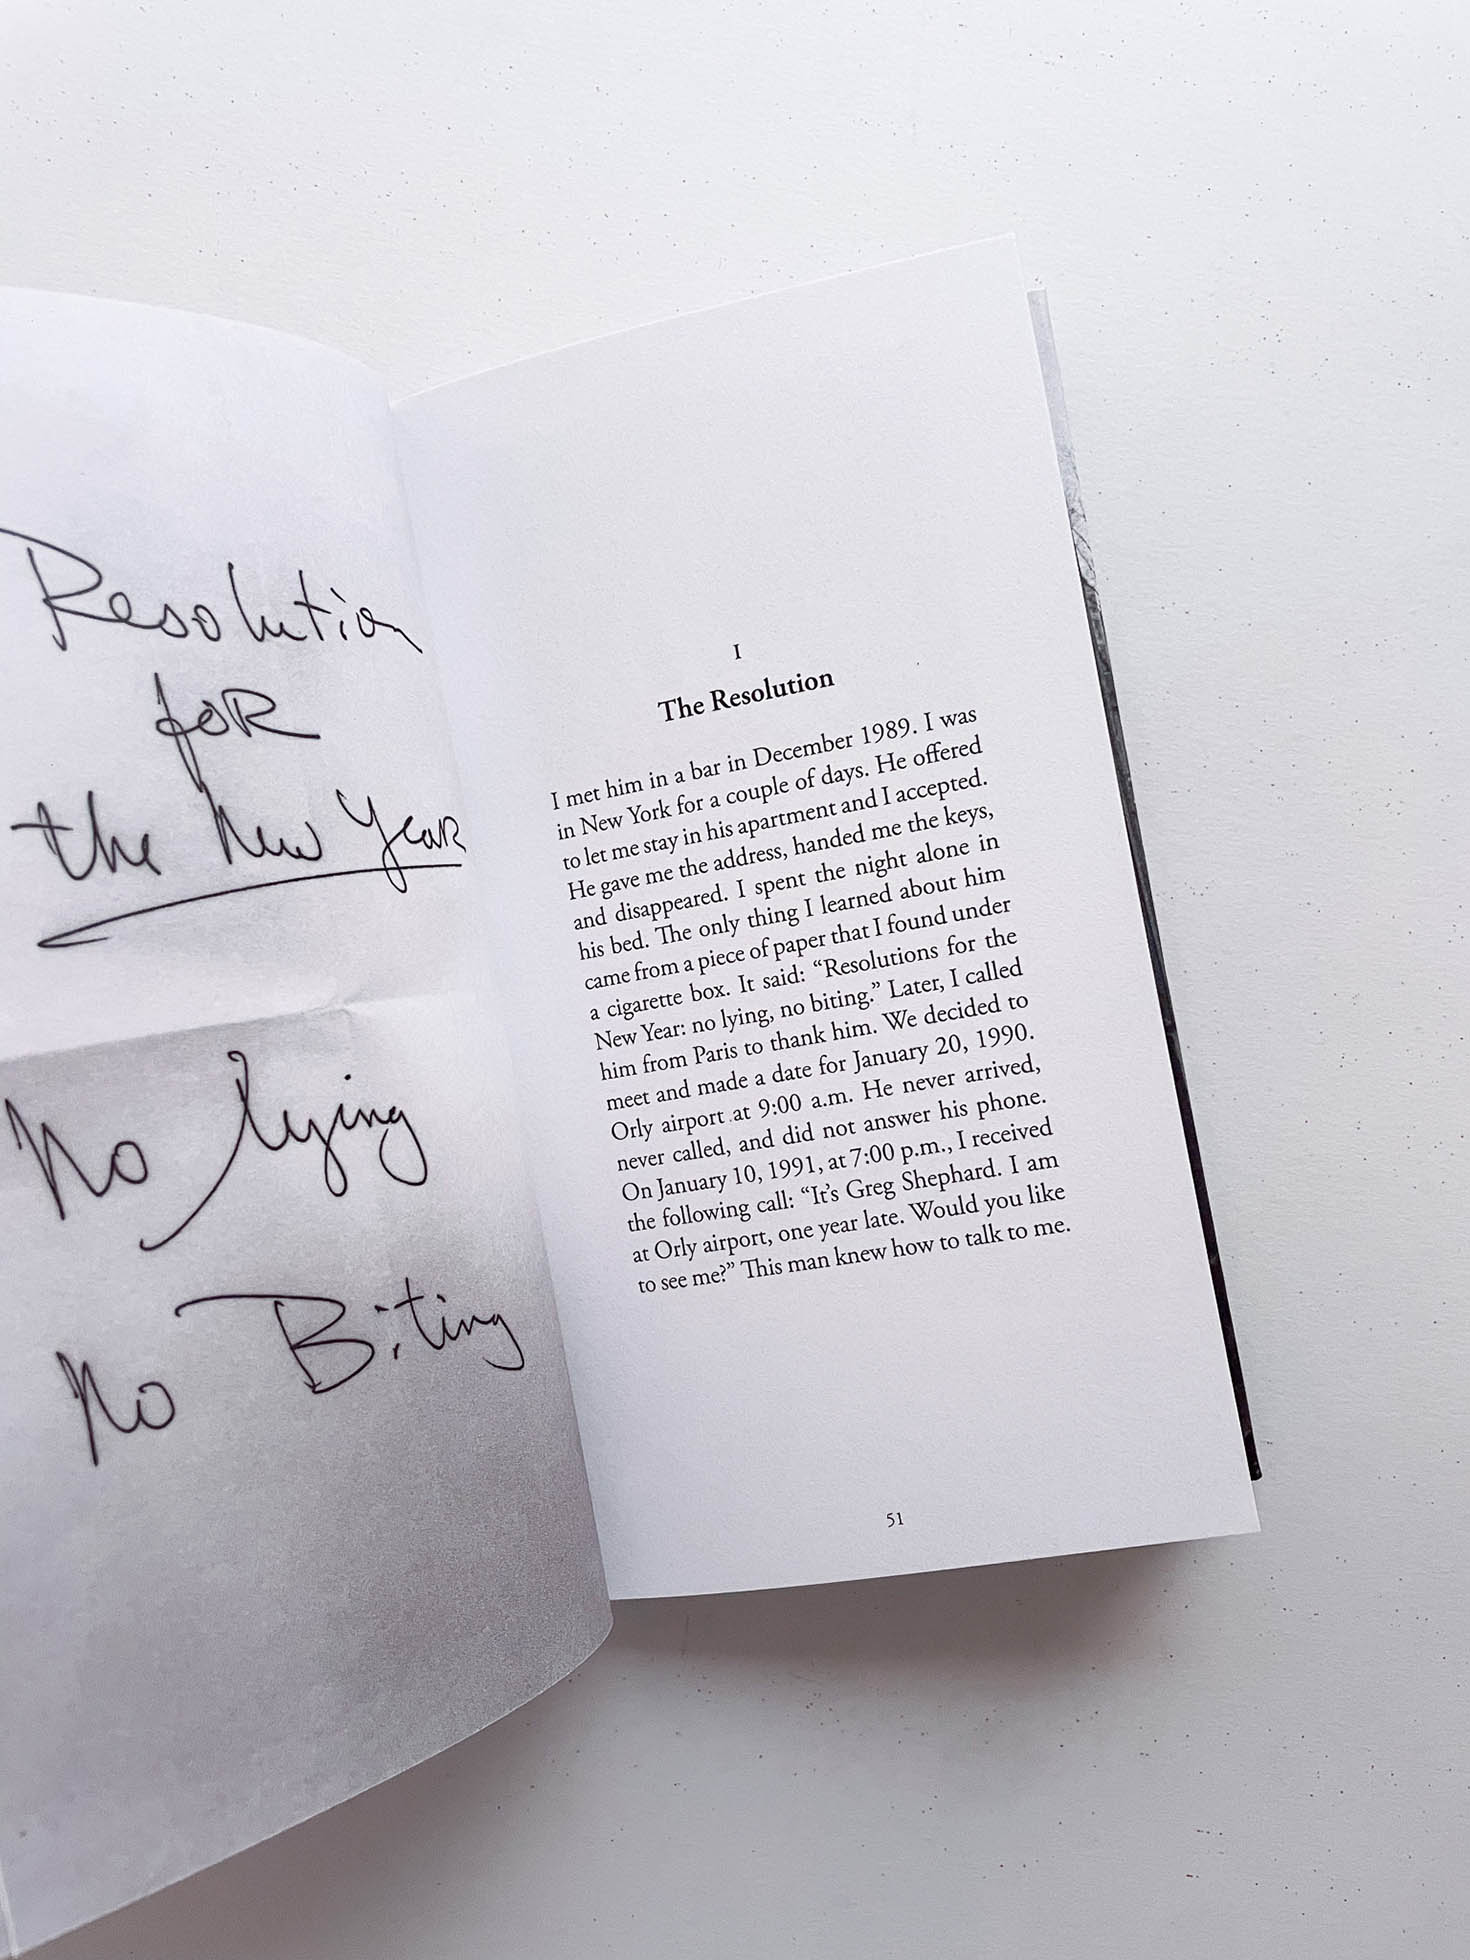 Resolution
for
the New Year
No lying
No Biting
I
The Resolution
I met him in a bar in December 1989. I was
in New York for a couple of days. He offered
to let me stay in his apartment and I accepted.
He gave me the address, handed me the keys,
and disappeared. I spent the night alone in
his bed. The only thing I learned about him
came from a piece of paper that I found under
a cigarette box. It said: “Resolutions for the
New Year: no lying, no biting.” Later, I called
him from Paris to thank him. We decided to
meet and made a date for January 20, 1990.
Orly airport at 9:00 a.m. He never arrived,
never called, and did not answer his phone.
On January 10, 1991, at 7:00 p.m., I received
the following call: “It’s Greg Shephard. I am
at Orly airport, one year late. Would you like
to see me?” This man knew how to talk to me.
51